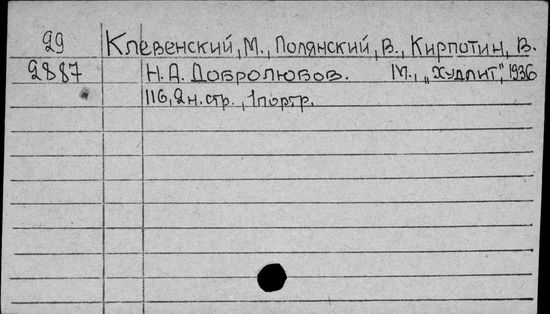 29 Клевенский, М., Полянский, В., Кирпотин, В.
2887 Н. А. Добролюбов. М., „Худлит", 1936
116, 2 н. стр., 1 портр.